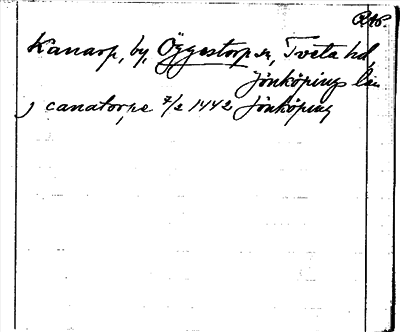 Kanarp, by, Öggestorp sn, Tveta hd,
Jönköpings län
j canatorpe 7/2 1442 Jönköping